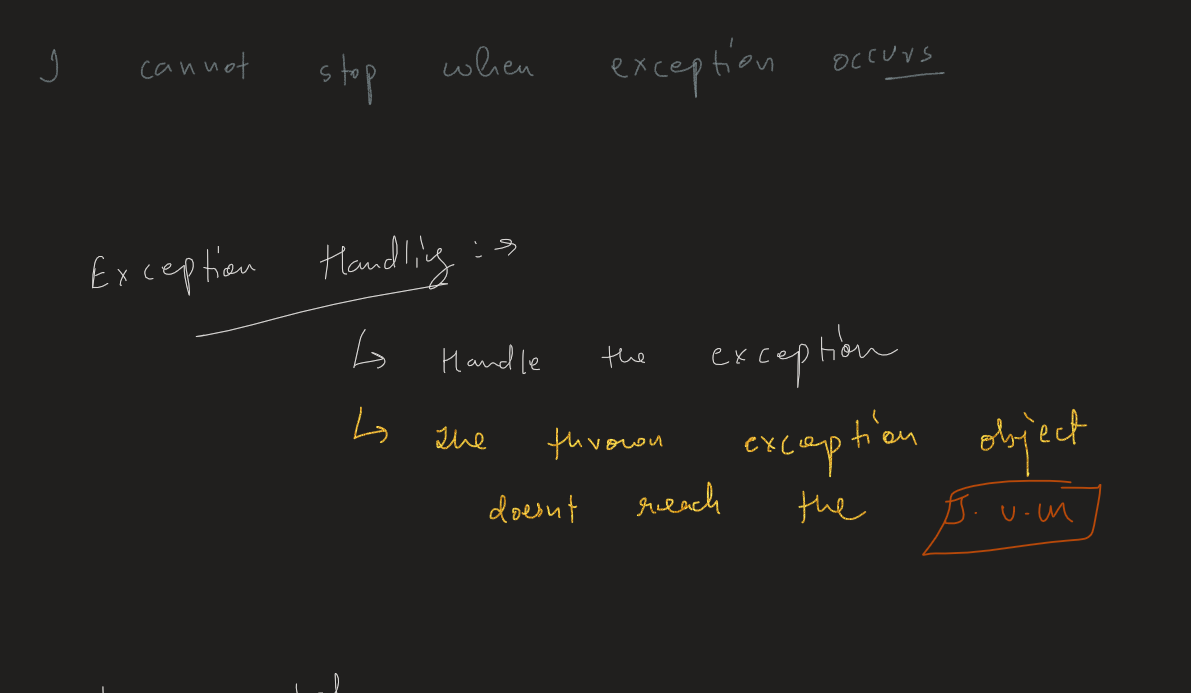 I cannot stop when exception occurs
Exception Handling :→
↳ Handle the exception
↳ The thrown exception object
doesnt reach the J.V.M